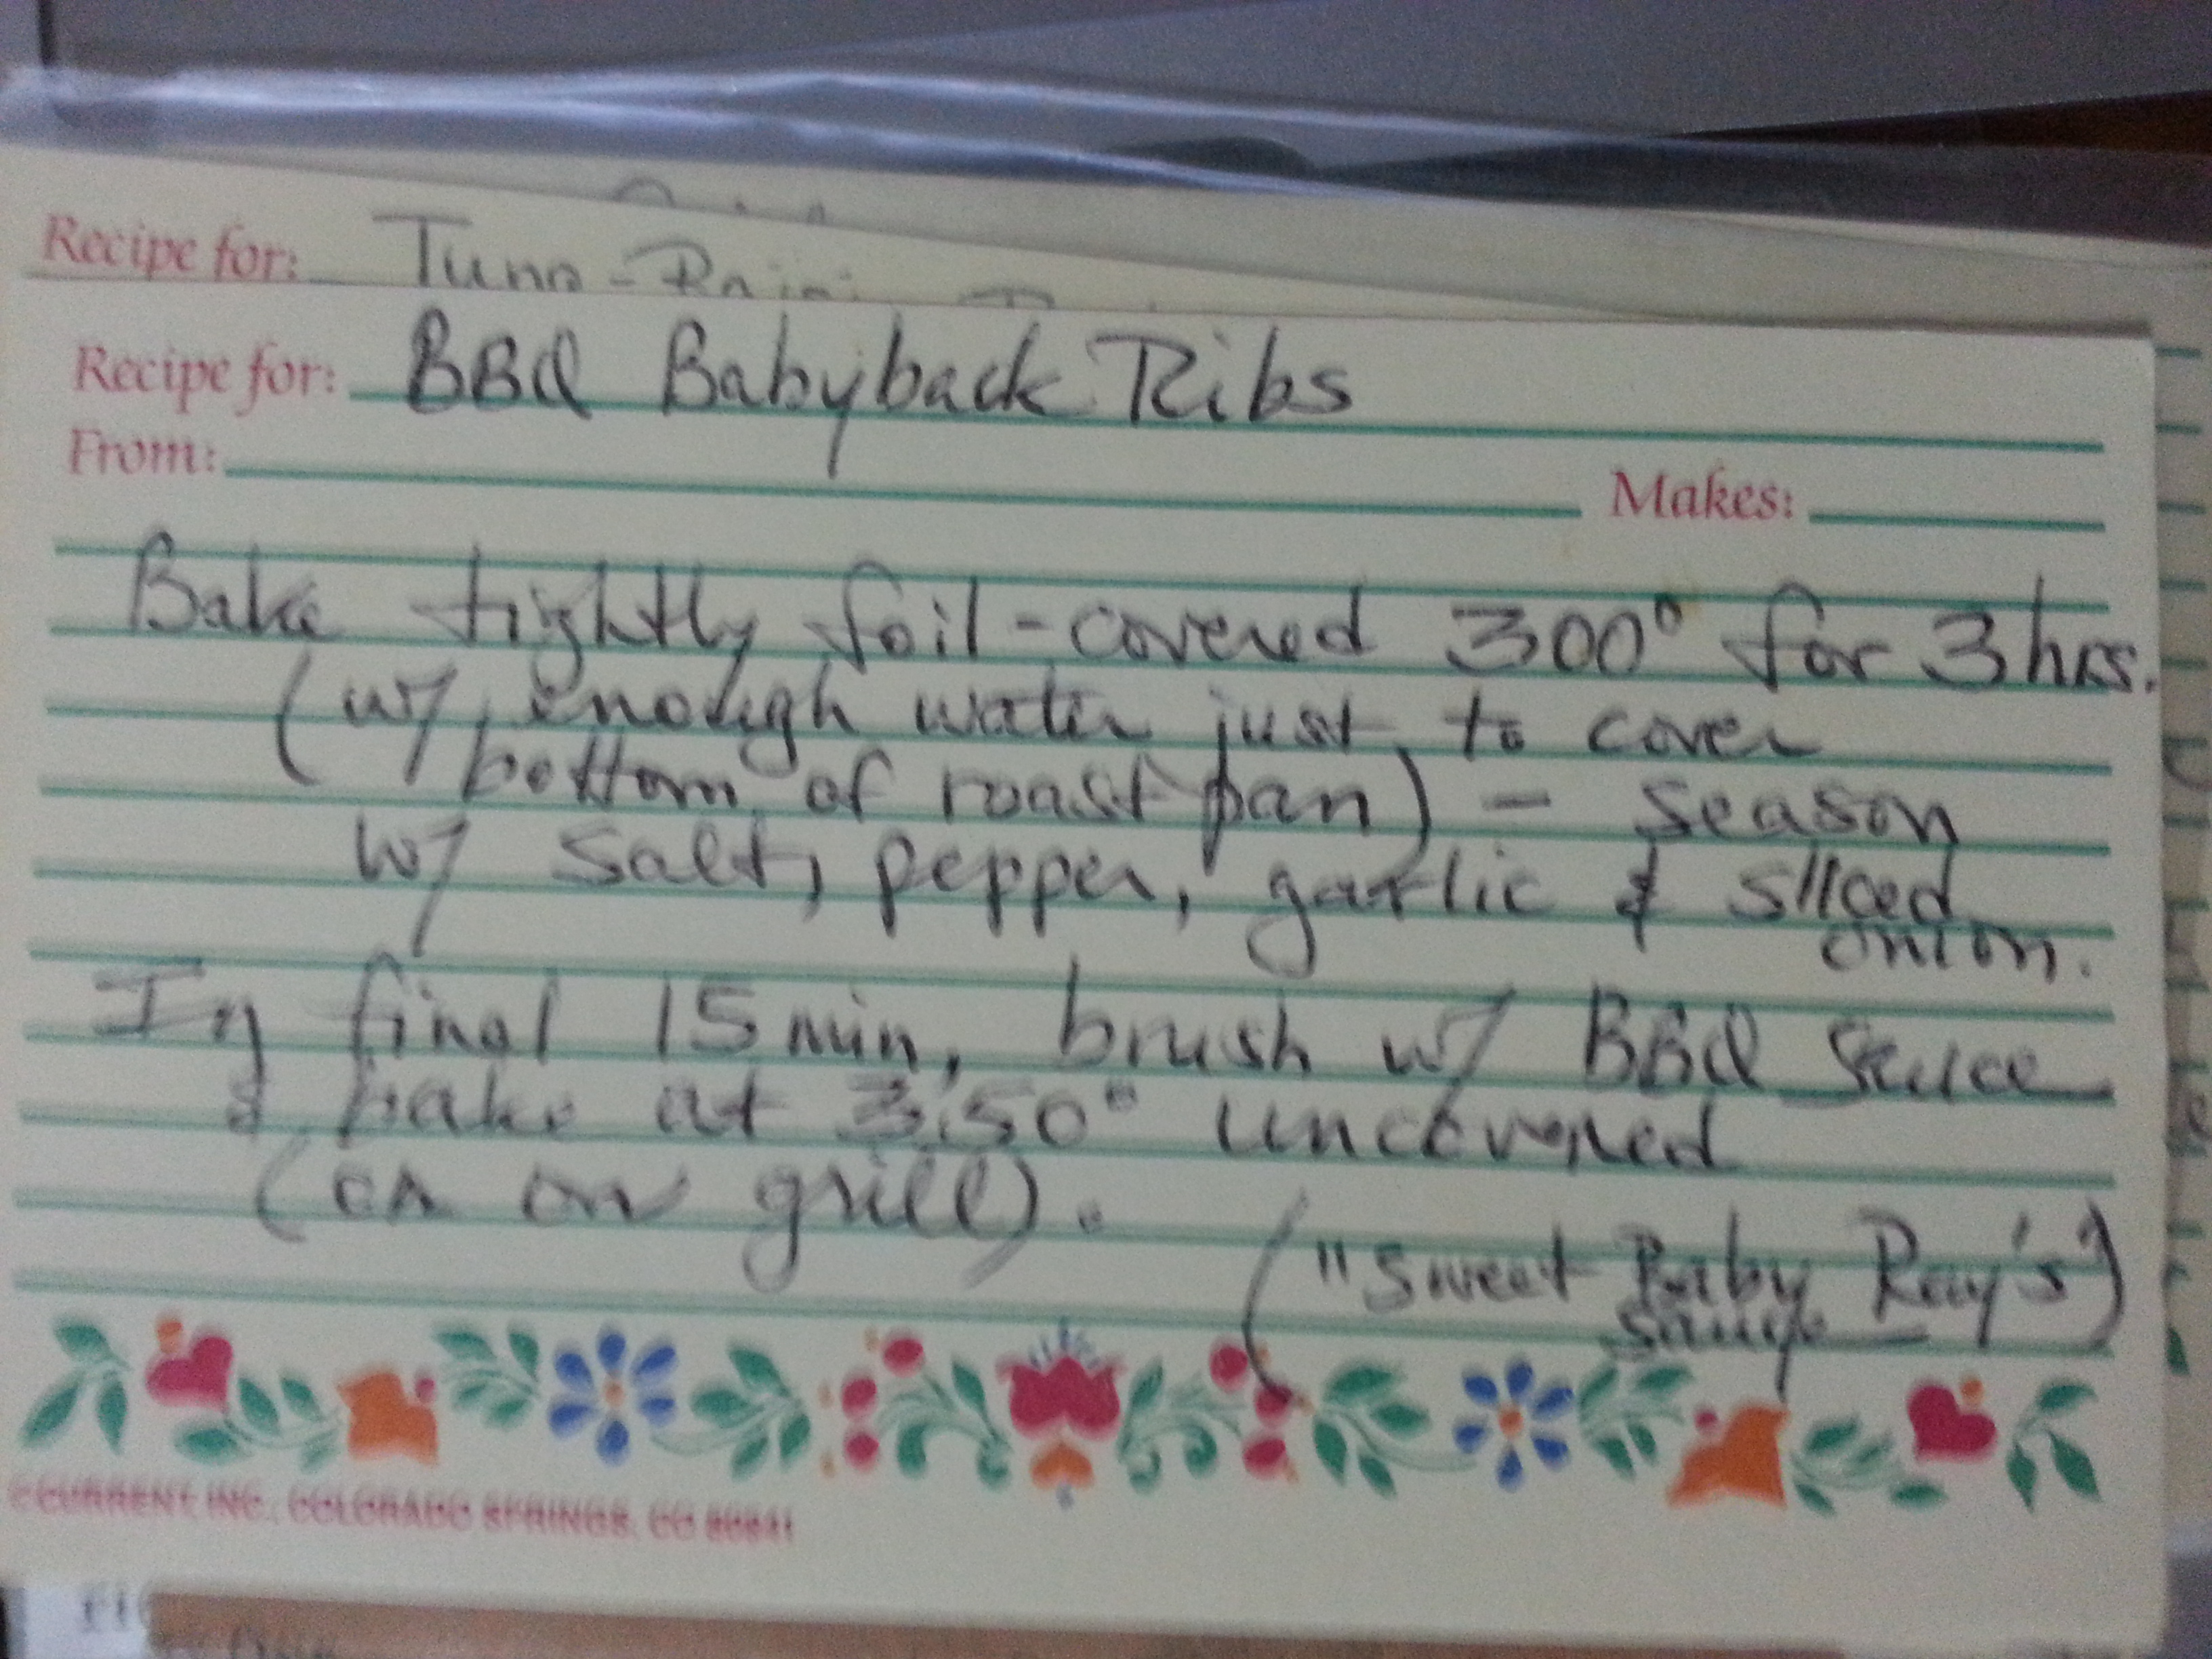 Recipe for: Tuna-
Recipe for: BBQ Babyback Ribs
From:
Makes:
Bake tightly foil-covered 300° for 3 hrs.
(w/ enough water just to cover
bottom of roast pan) - season
w/ salt, pepper, garlic & sliced
onion.
In final 15 min, brush w/ BBQ Sauce
& bake at 350° uncovered
(or on grill).
("Sweet Baby Ray's")
sauce
©CURRENT, INC., COLORADO SPRINGS, CO 80941